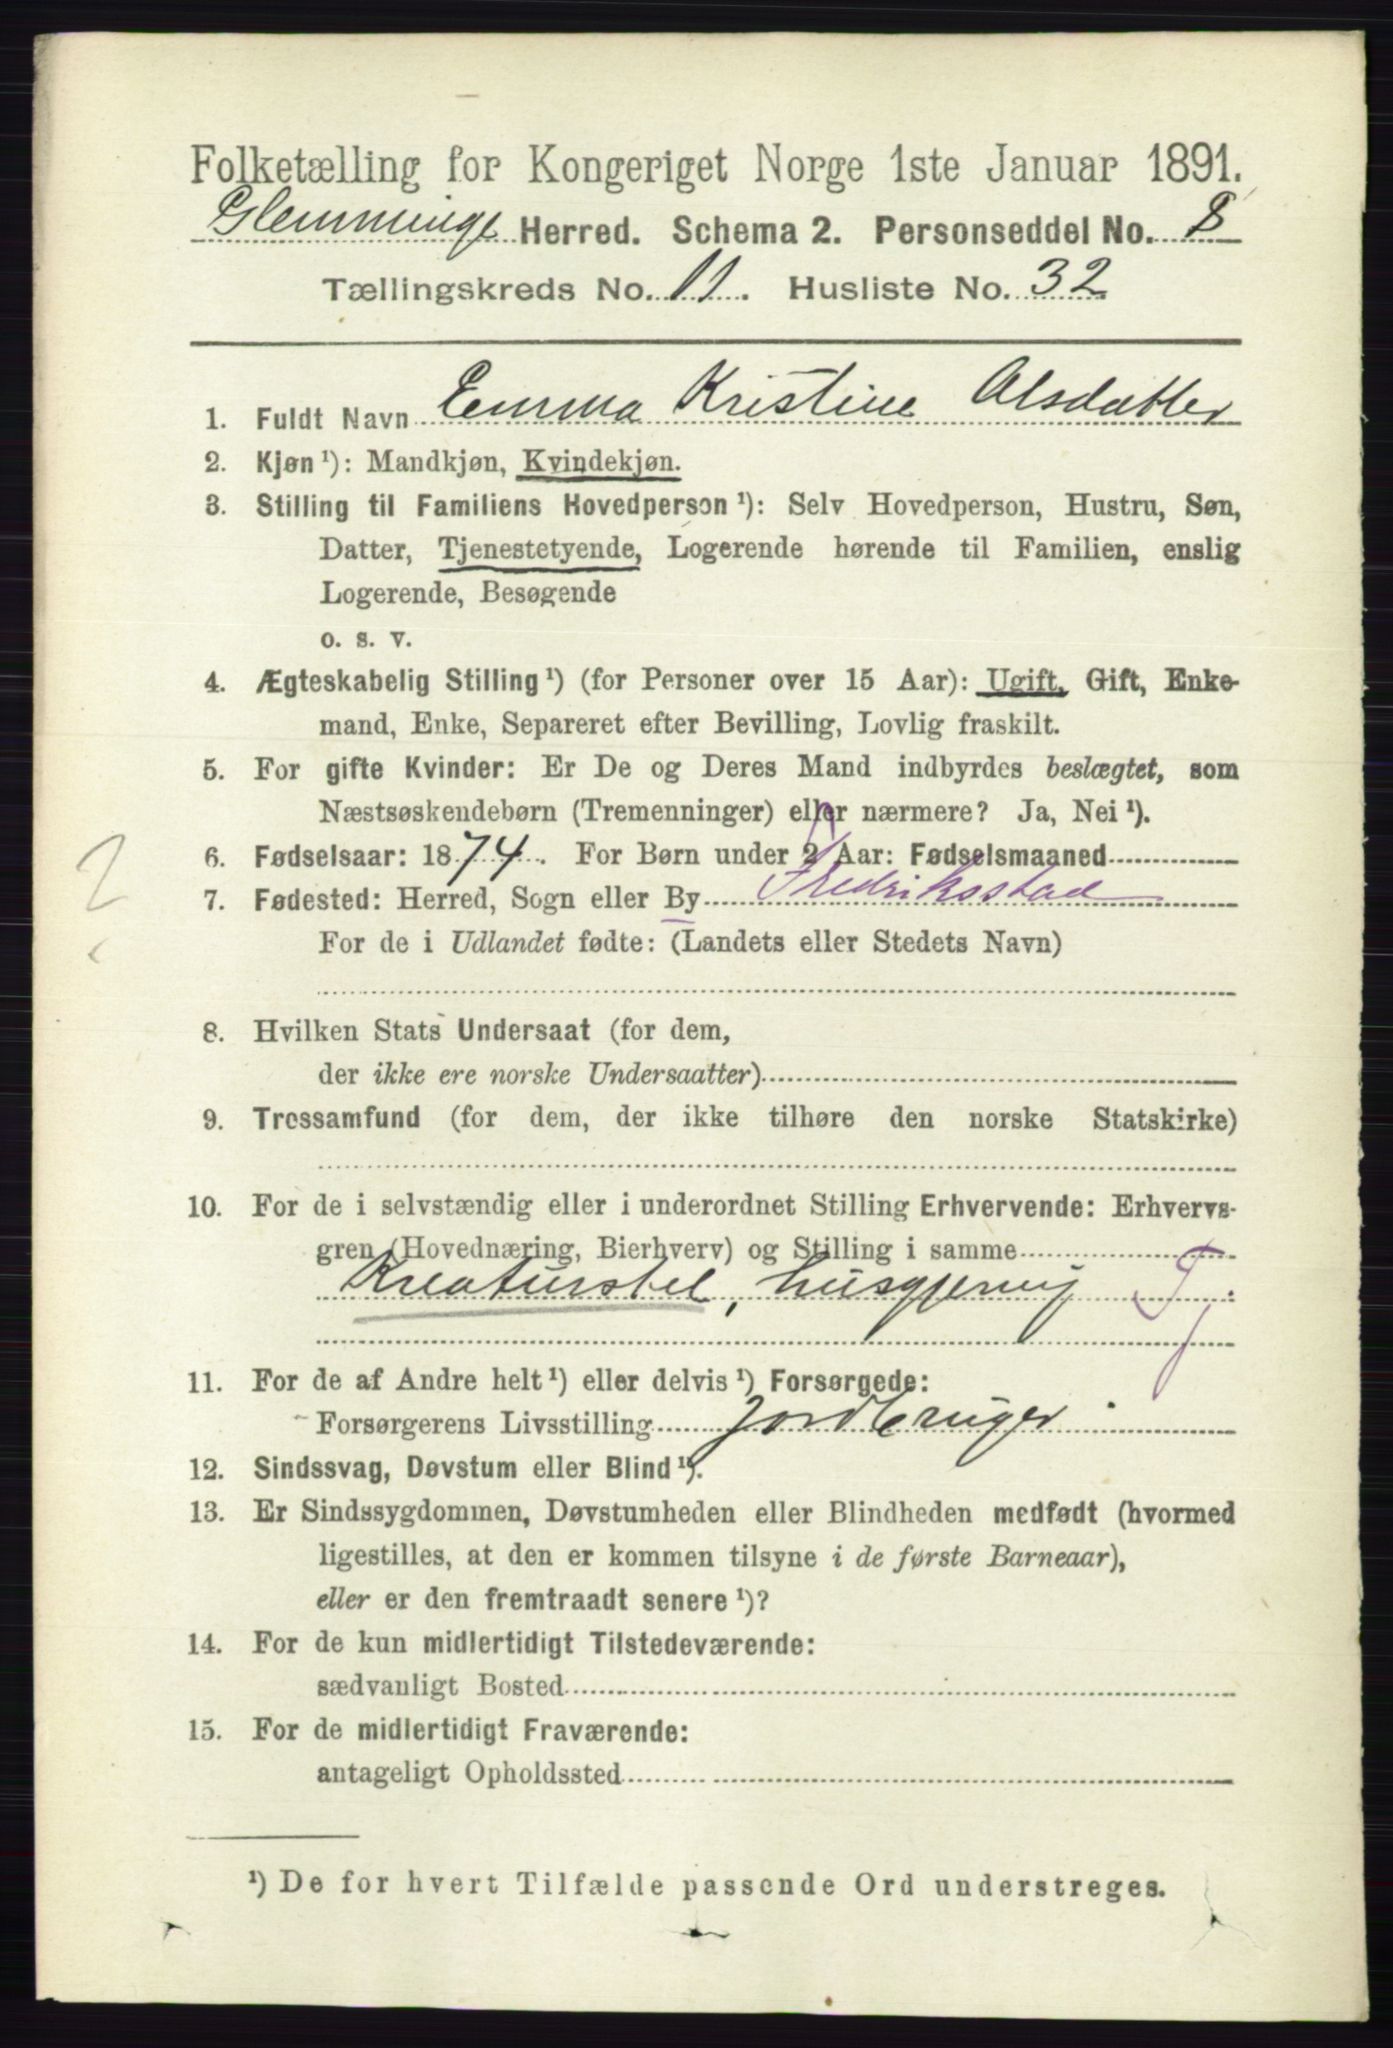 Folketælling for Kongeriget Norge 1ste Januar 1891.
Glemminge Herred. Schema 2. Personseddel No. 8
Tællingskreds No. 11. Husliste No. 32
1. Fuldt Navn Emma Kristine Olsdatter
2. Kjøn¹): Mandkjøn, Kvindekjøn.
3. Stilling til Familiens Hovedperson¹): Selv Hovedperson, Hustru, Søn,
Datter, Tjenestetyende, Logerende hørende til Familien, enslig
Logerende, Besøgende
o. s. v.
4. Ægteskabelig Stilling¹) (for Personer over 15 Aar): Ugift, Gift, Enke-
mand, Enke, Separeret efter Bevilling, Lovlig fraskilt.
5. For gifte Kvinder: Er De og Deres Mand indbyrdes beslægtet, som
Næstsøskendebørn (Tremenninger) eller nærmere? Ja, Nei¹).
6. Fødselsaar: 1874. For Børn under 2 Aar: Fødselsmaaned
7. Fødested: Herred, Sogn eller By Fredriksstad
For de i Udlandet fødte: (Landets eller Stedets Navn)
8. Hvilken Stats Undersaat (for dem,
der ikke ere norske Undersaatter)
9. Trossamfund (for dem, der ikke tilhøre den norske Statskirke)
10. For de i selvstændig eller i underordnet Stilling Erhvervende: Erhvervs-
gren (Hovednæring, Bierhverv) og Stilling i samme
Kreaturstel, husgjerning Tj
11. For de af Andre helt¹) eller delvis¹) Forsørgede:
Forsørgerens Livsstilling Jordbruger
12. Sindssvag, Døvstum eller Blind¹).
13. Er Sindssygdommen, Døvstumheden eller Blindheden medfødt (hvormed
ligestilles, at den er kommen tilsyne i de første Barneaar),
eller er den fremtraadt senere¹)?
14. For de kun midlertidigt Tilstedeværende:
sædvanligt Bosted
15. For de midlertidigt Fraværende:
antageligt Opholdssted
¹) De for hvert Tilfælde passende Ord understreges.